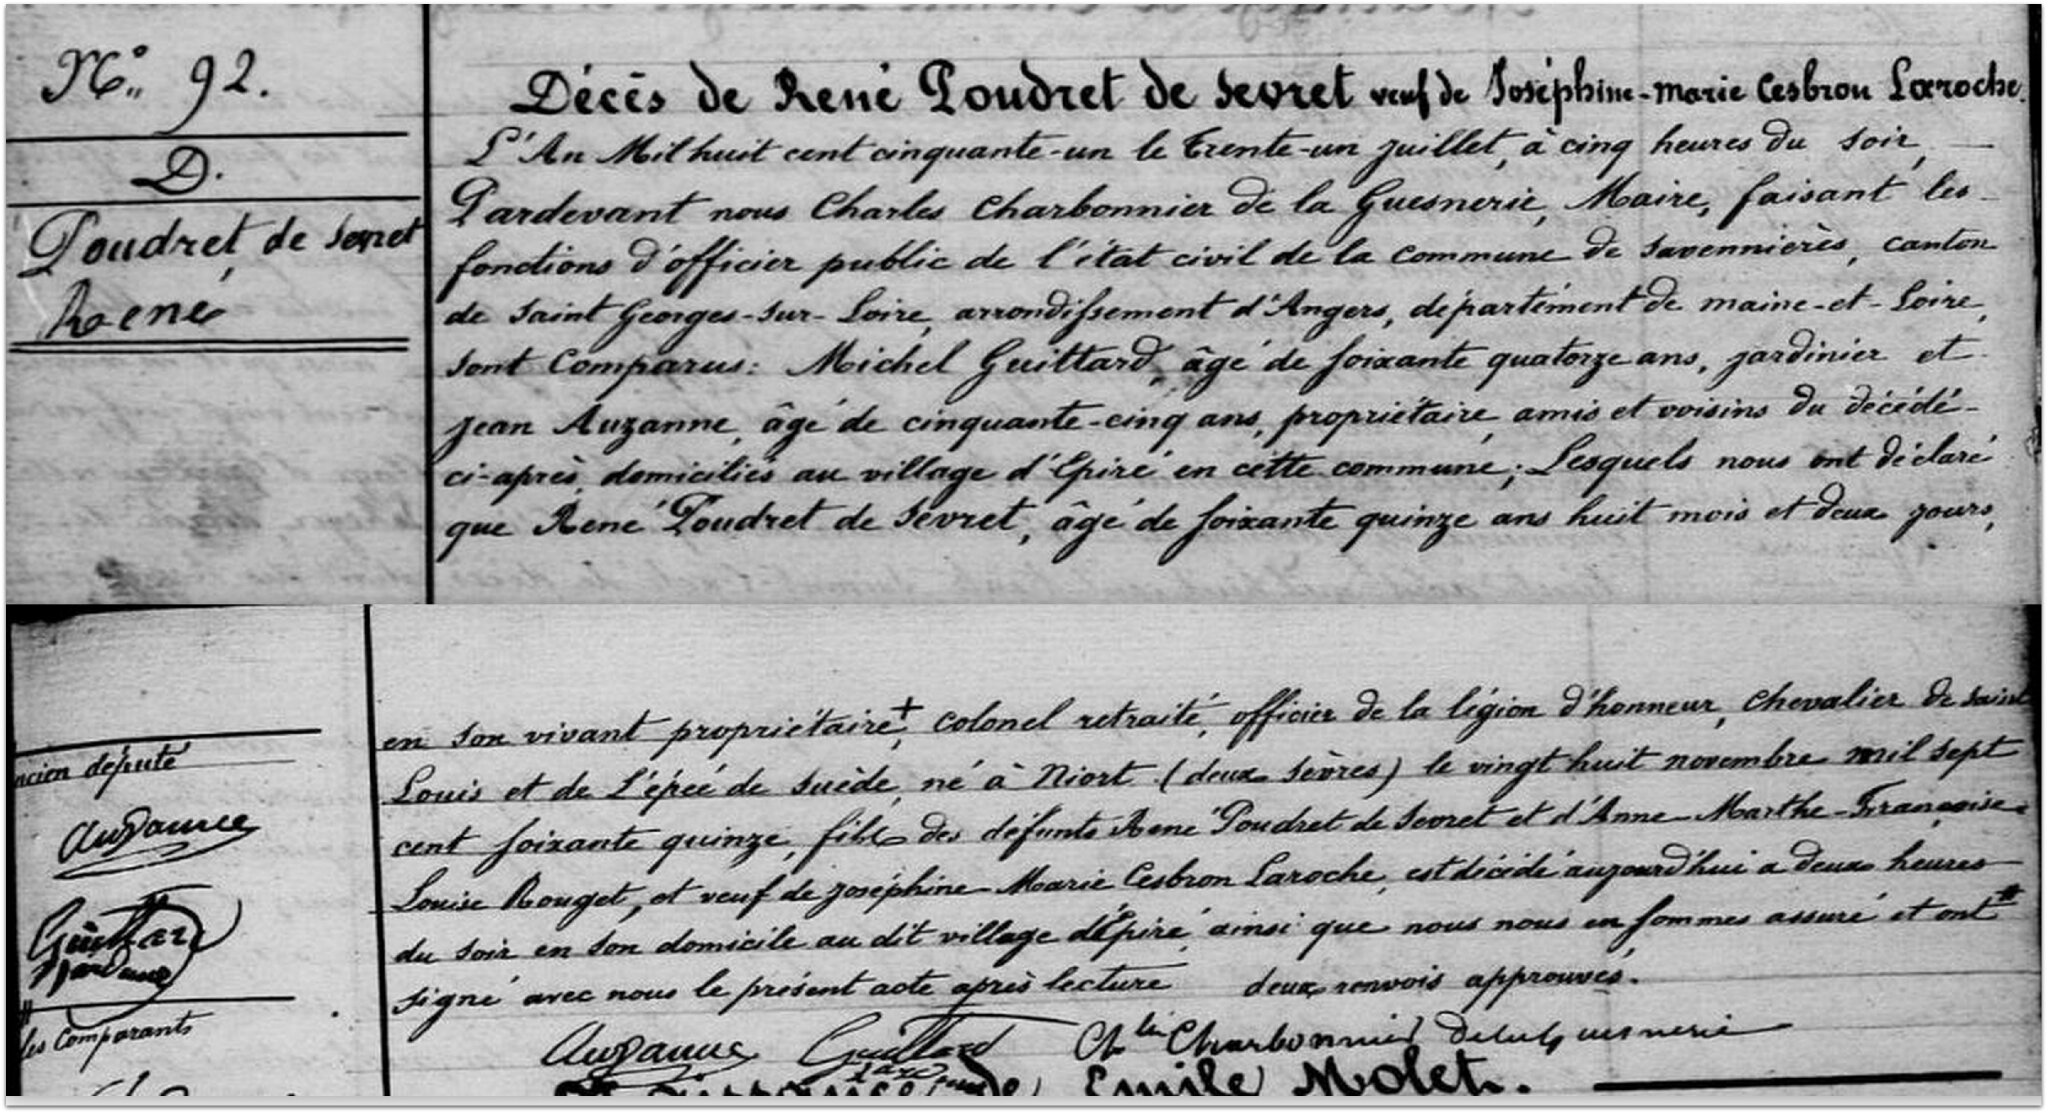 N.° 92.
D.
Poudret de Sevret
René
Décès de René Poudret de Sevret veuf de Joséphine-Marie Cesbron Laroche.
L'An Mil huit cent cinquante-un le trente-un juillet, à cinq heures du soir,
Pardevant nous Charles Charbonnier de la Guesnerie, Maire, faisant les
fonctions d'officier public de l'état civil de la commune de Savennières, canton
de Saint Georges-sur-Loire, arrondissement d'Angers, département de maine-et-Loire,
sont Comparus: Michel Guittard, âgé de soixante quatorze ans, jardinier et
jean Auzanne, âgé de cinquante-cinq ans, propriétaire, amis et voisins du décédé
ci-après, domiciliés au village d'Epiré en cette commune; Lesquels nous ont déclaré
que René Poudret de Sevret, âgé de soixante quinze ans huit mois et deux jours,
en son vivant propriétaire+, colonel retraité, officier de la légion d'honneur, chevalier de saint
Louis et de L'épée de suède, né à Niort (deux sèvres) le vingt huit novembre mil sept
cent soixante quinze, fils des défunts René Poudret de Sevret et d'Anne-Marthe-Françoise
Louise Rouget, et veuf de joséphine-Marie Cesbron Laroche, est décédé aujourd'hui a deux heures
du soir en son domicile au dit village d'Epiré ainsi que nous nous en sommes assuré et ont #
signé avec nous le présent acte après lecture deux renvois approuvés.
ncien député
Auzanne
Guittard
#
les Comparants
Auzanne Guittard Ch.les Charbonnier Delaguesnerie
de Emile Molet.